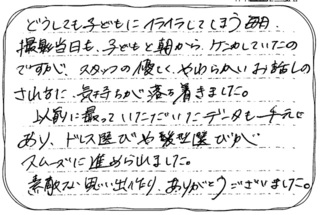 どうしても子どもにイライラしてしまう毎日。
撮影当日も、子どもと朝からケンカしていたの
ですが、スタッフの優しく、やわらかいお話しの
され方に、気持ちが落ち着きました。
以前に撮っていただいたデータも手元に
あり、ドレス選びや髪型選びが
スムーズに進められました。
素敵な思い出作り、ありがとうございました。